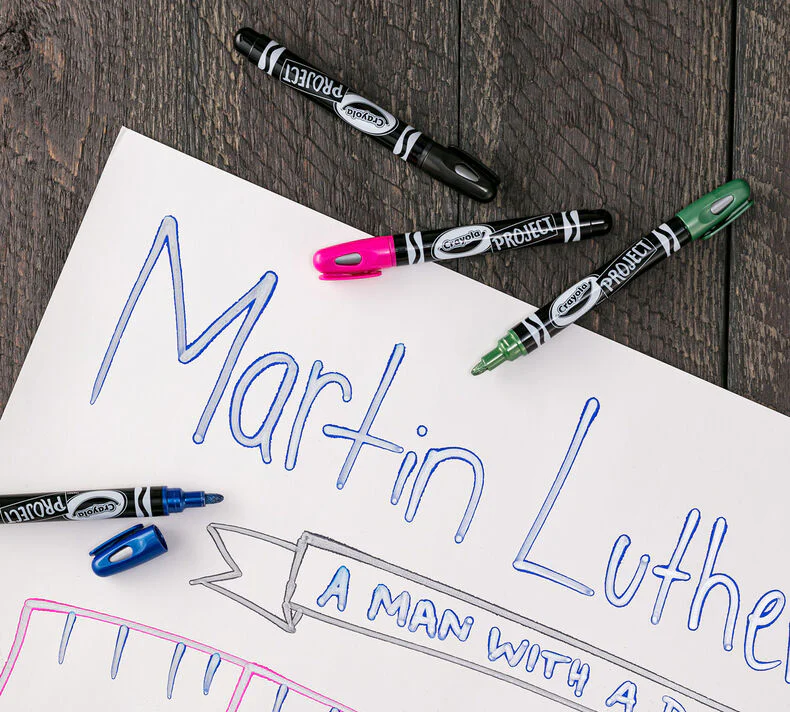 PROJECT Crayola
Crayola PROJECT
Crayola PROJECT
Martin Luthe
PROJECT Crayola
A MAN WITH A